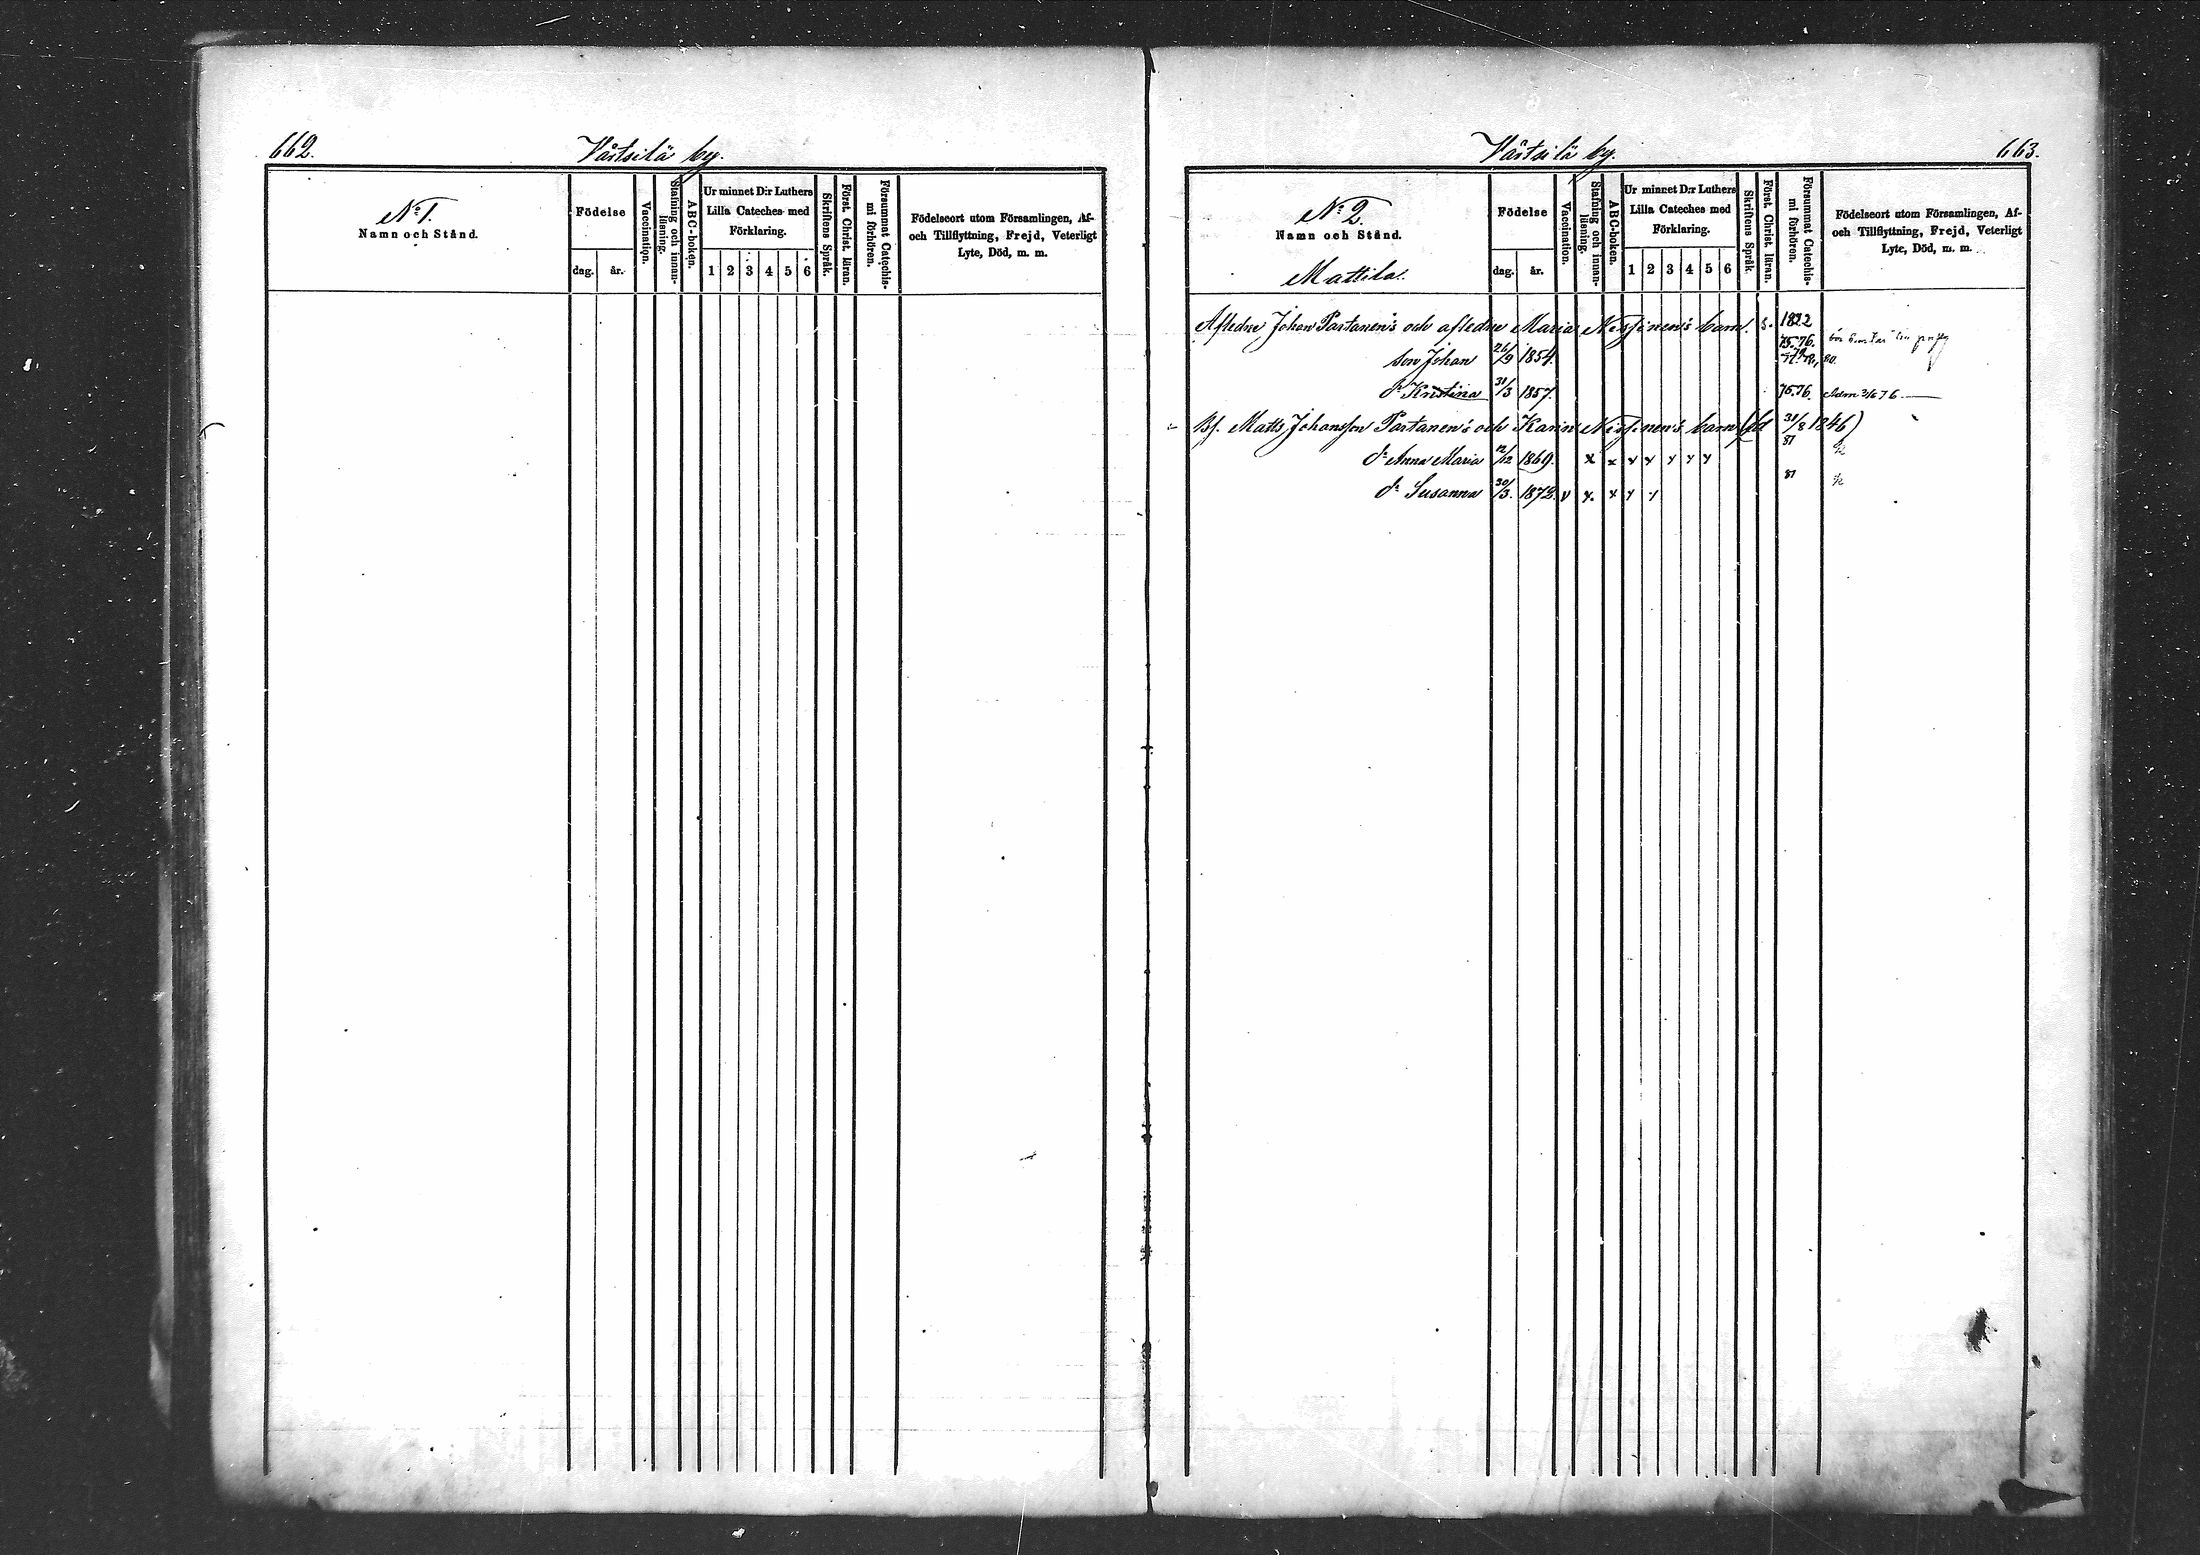 662.
Värtsilä by.
No 1.
Namn och Stånd.
Födelse
dag.
år.
Vaccination.
Stafning och innan-
läsning.
ABC-boken.
Ur minnet D:r Luthers
Lilla Cateches med
Förklaring.
1 2 3 4 5 6
Skriftens Språk.
Först. Christ. läran.
Försummat Catechis-
mi förhören.
Födelseort utom Församlingen, Af-
och Tillflyttning, Frejd, Veterligt
Lyte, Död, m. m.
Värtsilä by.
663.
No 2.
Namn och Stånd.
Mattila.
Födelse
dag.
år.
Vaccination.
Stafning och innan-
läsning.
ABC-boken.
Ur minnet D:r Luthers
Lilla Cateches med
Förklaring.
1 2 3 4 5 6
Skriftens Språk.
Först. Christ. läran.
Försummat Catechis-
mi förhören.
Födelseort utom Församlingen, Af-
och Tillflyttning, Frejd, Veterligt
Lyte, Död, m. m.
Afledne Johan Partanen's och afledne Maria Nissinen's barn. 1822
75.76.
son Johan 26/9 1854. 80.
dr Kristina 31/3 1857. 75.76. Adm 2/6 76
Bf. Matts Johansson Partanen's och Karin Nissinen's barn (fd 31/8 1846)
dr Anna Maria 12/12 1869. x x x x x x x 81
dr Susanna 30/3. 1872. v x. x x x 81